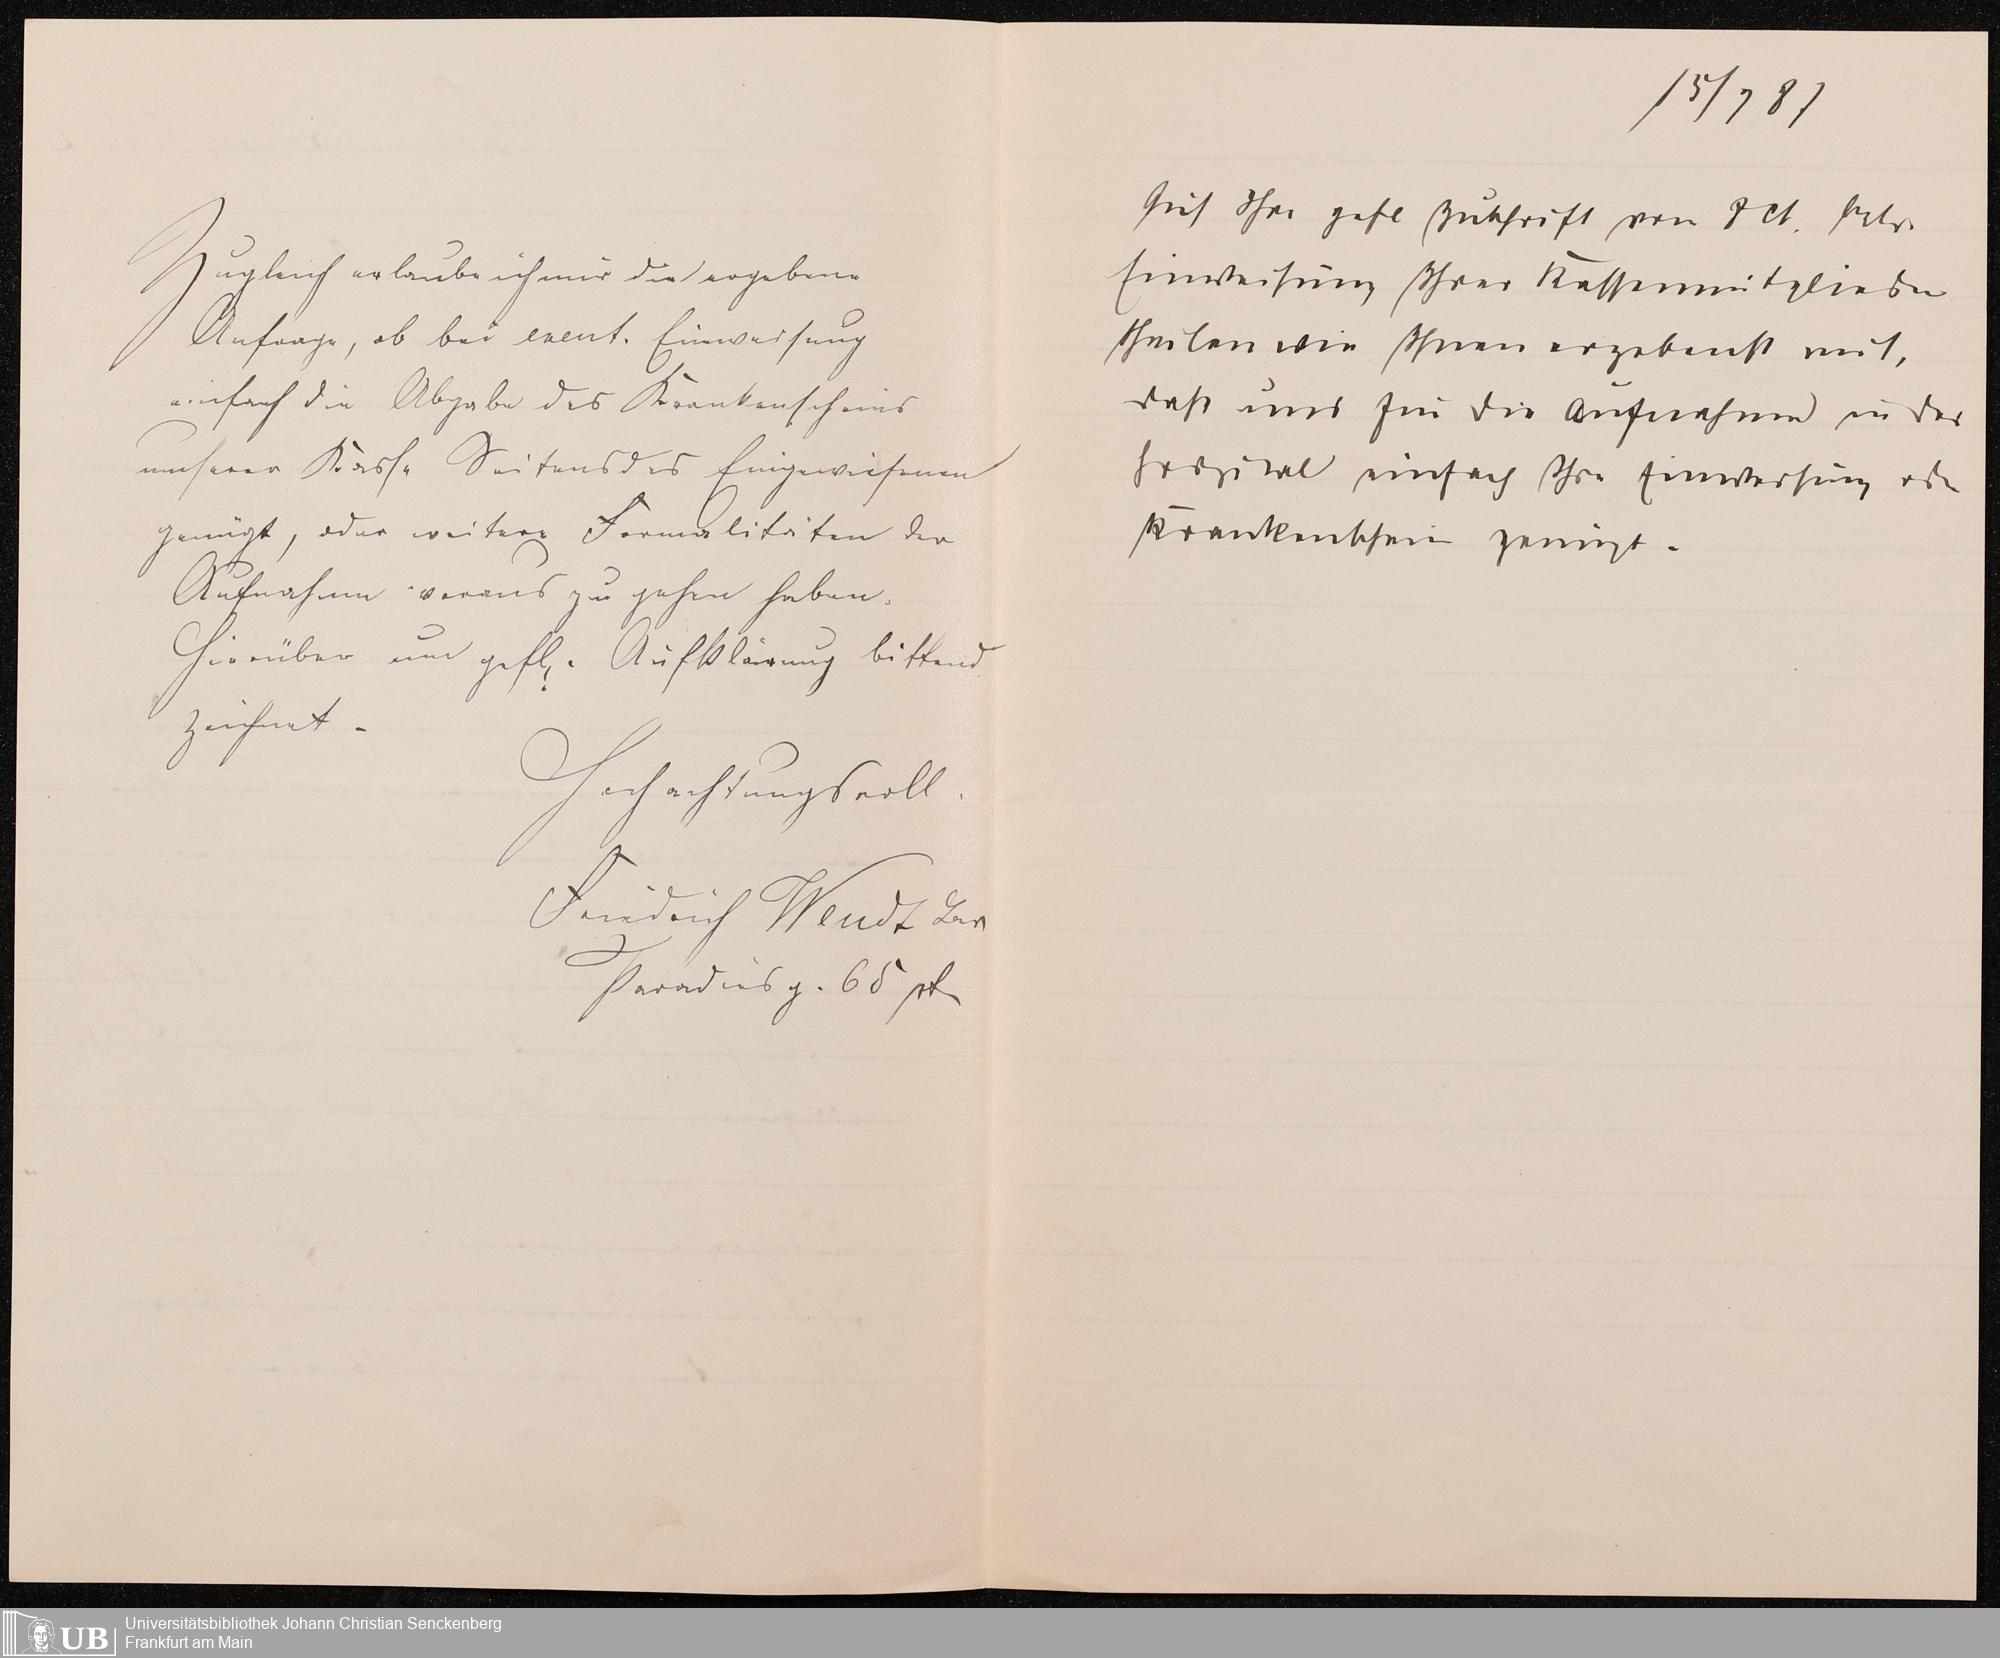 Zugleich erlaube ich mir die ergebene
Anfrage, ob bei event. Einweisung
einfach die Abgabe des Krankenscheins
unserer Kasse Seitens des Eingewiesenen
genügt, oder weitere Formalitäten der
Aufnahme voraus zu gehen haben.
Hierüber um gefl. Aufklärung bittend
zeichnet -
Hochachtungsvoll.
Friedrich Wendt
Paradiesg. 65 pt
15/7 87
Auf Ihre gefl Zuschrift vom 8 ct.
Einweisung Ihrer Kassenmitglieder
theilen wir Ihnen ergebenst mit,
daß uns für die Aufnahme in das
Hospital einfach Ihre Einweisung oder
Krankenschein genügt.
Universitätsbibliothek Johann Christian Senckenberg
UB Frankfurt am Main